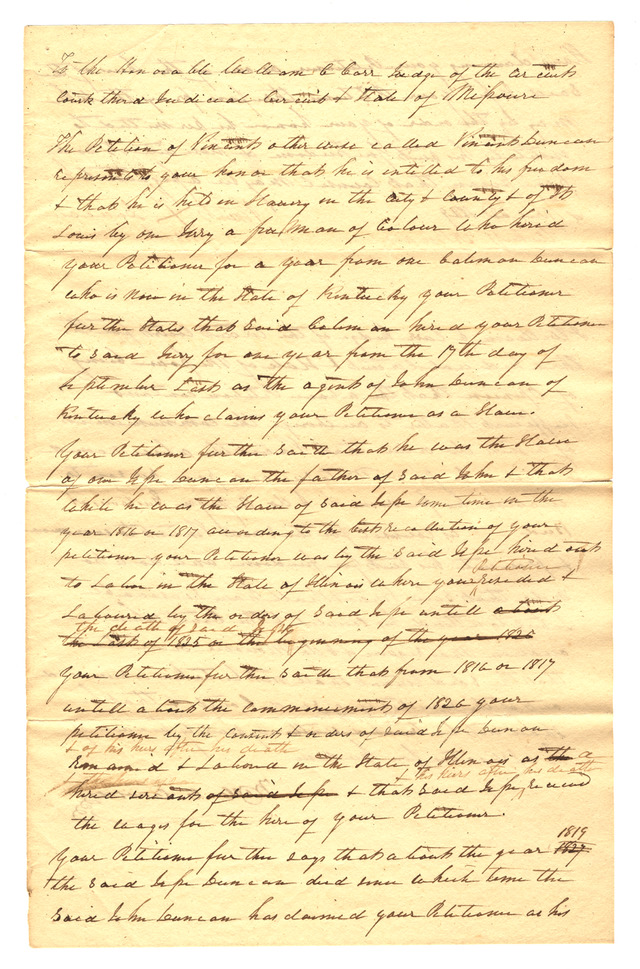 To the Honorable William C Carr Judge of the Circuit
Court third Judicial Circuit & State of Missouri
The Petition of Vincent otherwise called Vincent Duncan
represents to your honor that he is intitled to his freedom
& that he is held in Slavery in the City & County & of St
Louis by one Jerry a free Man of Colour who hired
your Petitioner for a year from one Coleman Duncan
who is now in the State of Kentucky your Petitioner
further States that said Coleman hired your Petitioner
to said Jerry for one year from the 17th day of
September Last as the agent of John Duncan of
Kentucky who claims your Petitioner as a Slave.
Your Petitioner further Saith that he was the Slave
of one Jesse Duncan the father of said John & that
while he was the Slave of said Jesse some time in the
year 1816 or 1817 according to the best recollection of your
petitioner your Petitioner was by the said Jesse hired out
to Labor in the State of Illinois where your Petitioner resided &
Laboured by the orders of said Jesse untill about
the death of said Jesse
the Last of 1825 or the beginning of the year 1826
Your Petitioner further Saith that from 1816 or 1817
untill about the commencement of 1826 your
petitioner by the consent & orders of said Jesse Duncan
& of his heirs after his death
Remained & Labored in the State of Illinois as the a
& his heirs after his death
hired servant of said Jesse & that said Jesse, Received
the wages for the hire of your Petitioner.
1819
Your Petitioner further says that about the year 1827
the said Jesse Duncan died since which time the
said John Duncan has claimed your Petitioner as his